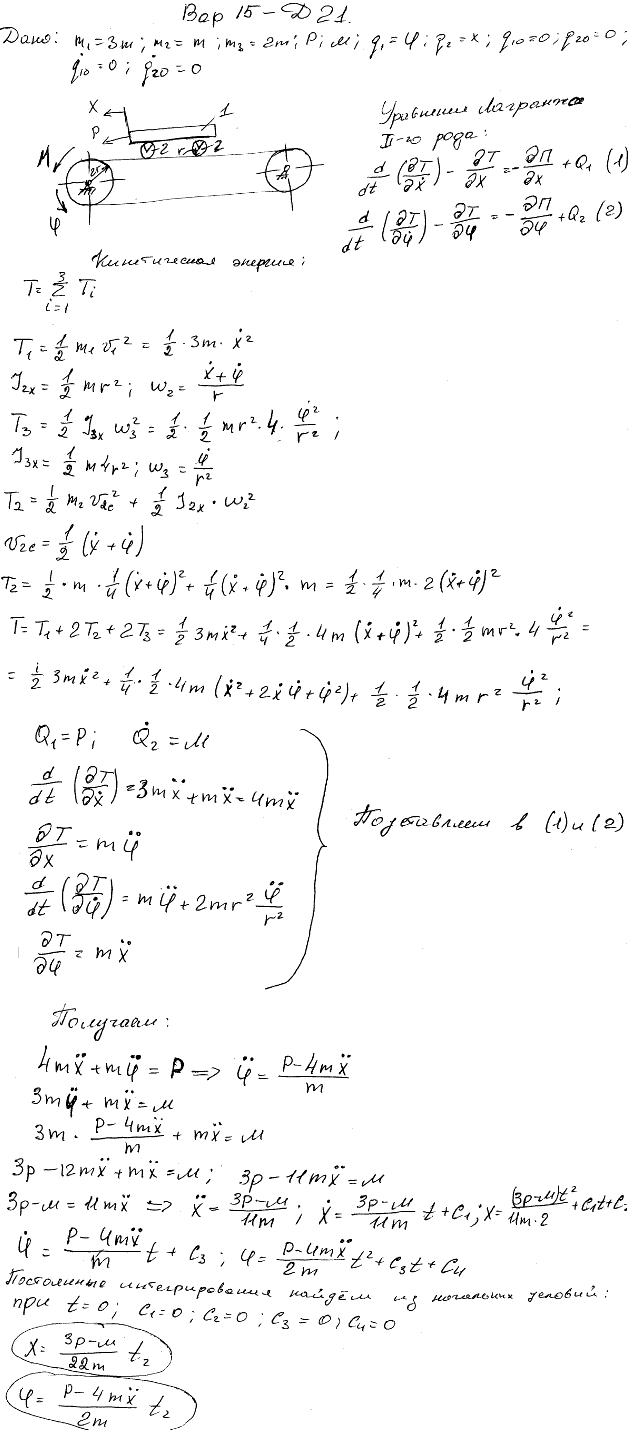 Вар 15 – Д 21.
Дано: m₁=3m; m₂=m; m₃=2m; P; M; q₁=φ; q₂=x; q₁₀=0; q₂₀=0;
q̇₁₀=0; q̇₂₀=0
X
P
1
2 r 2
M
φ
Уравнения Лагранжа
II-го рода:
d/dt (∂T/∂ẋ) - ∂T/∂x = -∂П/∂x + Q₁ (1)
d/dt (∂T/∂φ̇) - ∂T/∂φ = -∂П/∂φ + Q₂ (2)
Кинетическая энергия:
T = Σ³ᵢ₌₁ Tᵢ
T₁ = 1/2 m₁ v₁² = 1/2 · 3m · ẋ²
J₂ₓ = 1/2 mr²; w₂ = (ẋ+φ̇)/r
T₃ = 1/2 J₃ₓ w₃² = 1/2 · 1/2 mr² · 4 · φ̇²/r²;
J₃ₓ = 1/2 m4r²; w₃ = φ̇/r²
T₂ = 1/2 m₂ v₂c² + 1/2 J₂ₓ · w₂²
v₂c = 1/2 (ẋ+φ̇)
T₂ = 1/2 · m · 1/4 (ẋ+φ̇)² + 1/4 (ẋ+φ̇)² · m = 1/2 · 1/4 · m · 2(ẋ+φ̇)²
T = T₁ + 2T₂ + 2T₃ = 1/2 3mẋ² + 1/4 · 1/2 · 4m (ẋ+φ̇)² + 1/2 · 1/2 mr² · 4 φ̇²/r² =
= 1/2 3mẋ² + 1/4 · 1/2 · 4m (ẋ² + 2ẋφ̇ + φ̇²) + 1/2 · 1/2 · 4mr² φ̇²/r²;
Q₁ = P; Q̇₂ = M
d/dt (∂T/∂ẋ) = 3mẍ + mẍ = 4mẍ
∂T/∂x = mφ̈
d/dt (∂T/∂φ̇) = mφ̈ + 2mr² φ̈/r²
∂T/∂φ = mẍ
Подставляем в (1) и (2)
Получаем:
4mẍ + mφ̈ = P => φ̈ = (P-4mẍ)/m
3mφ̈ + mẍ = M
3m · (P-4mẍ)/m + mẍ = M
3P - 12mẍ + mẍ = M; 3P - 11mẍ = M
3P - M = 11mẍ => ẍ = (3P-M)/11m; ẋ = (3P-M)/11m t + C₁; x = (3P-M)t²/11m·2 + C₁t + C₂
φ̇ = (P-4mẍ)/m t + C₃; φ = (P-4mẍ)/2m t² + C₃t + C₄
Постоянные интегрирования найдём из начальных условий:
при t=0; C₁=0; C₂=0; C₃=0; C₄=0
X = (3P-M)/22m t₂
φ = (P-4mẍ)/2m t₂